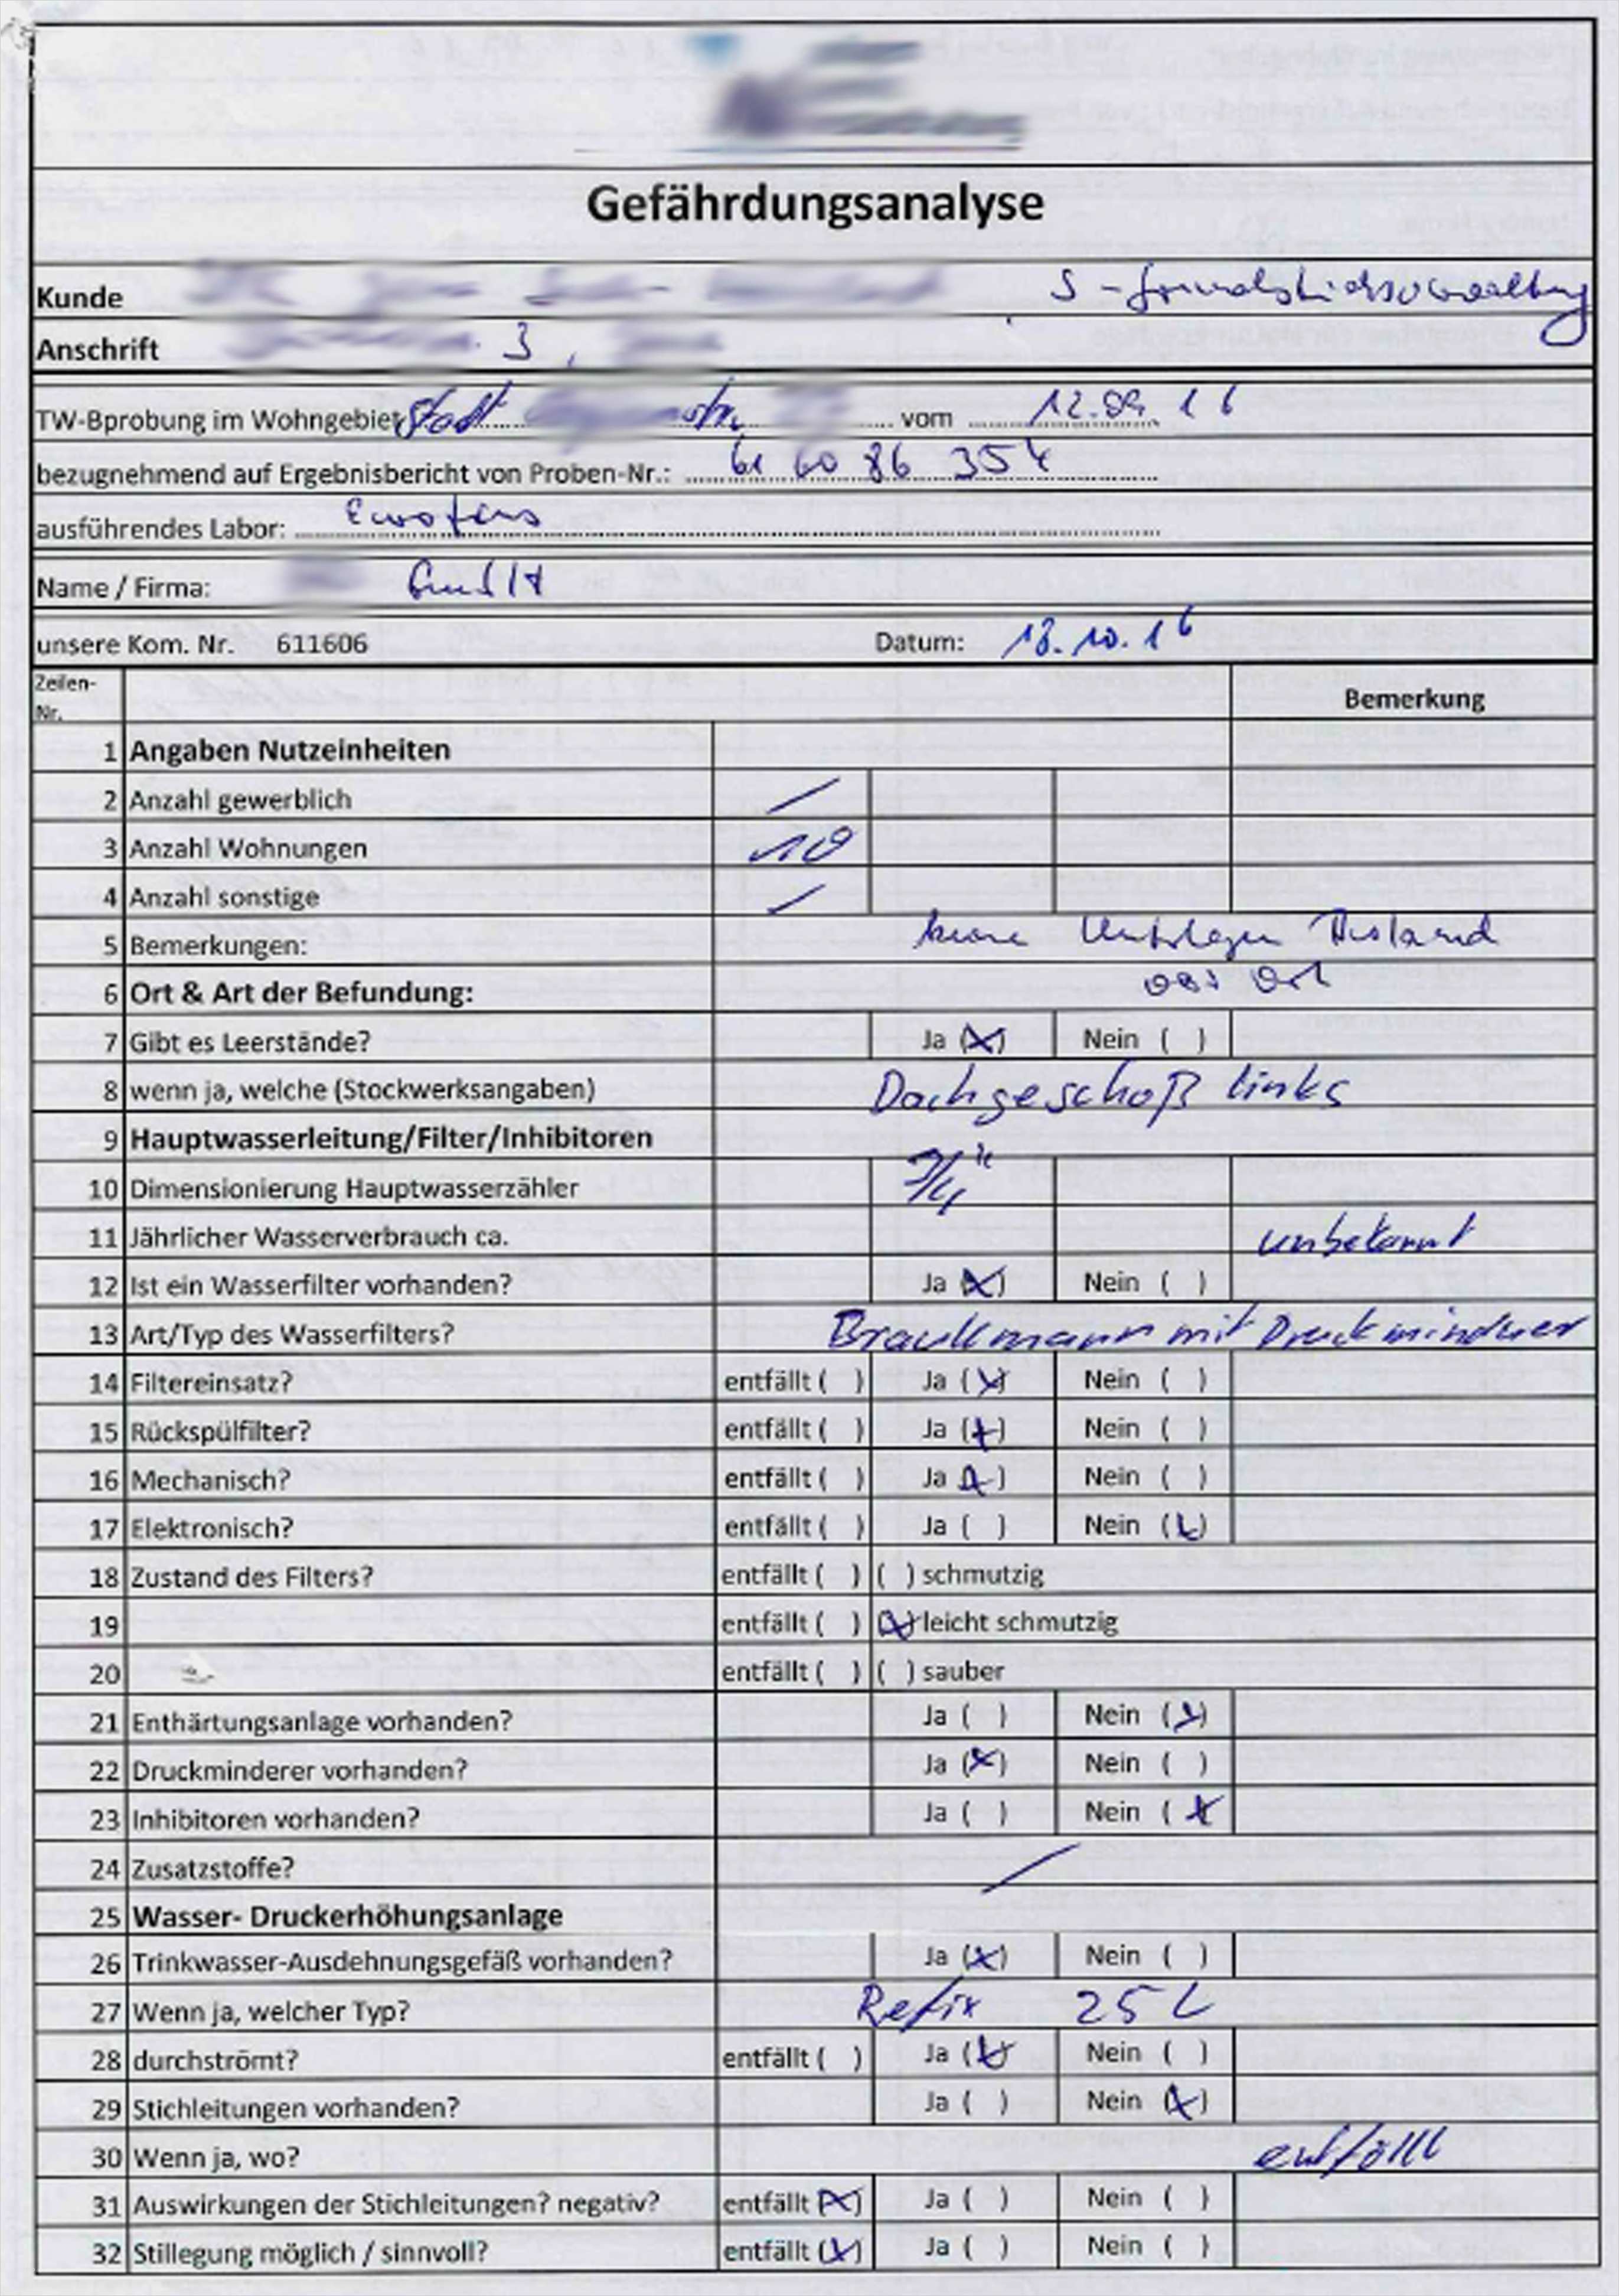 Gefährdungsanalyse
Kunde S-Grundstücksverwaltung
Anschrift 3,
TW-Bprobung im Wohngebiet Stadt str. vom 12.09.16
bezugnehmend auf Ergebnisbericht von Proben-Nr.: 61 60 86 354
ausführendes Labor: Eurofins
Name / Firma: GmbH
unsere Kom. Nr. 611606 Datum: 18.10.16
Zeilen-Nr. Bemerkung
1 Angaben Nutzeinheiten
2 Anzahl gewerblich /
3 Anzahl Wohnungen 10
4 Anzahl sonstige /
5 Bemerkungen: keine Unterlagen Bestand
vor Ort
6 Ort & Art der Befundung:
7 Gibt es Leerstände? Ja (x) Nein ( )
8 wenn ja, welche (Stockwerksangaben) Dachgeschoß links
9 Hauptwasserleitung/Filter/Inhibitoren
10 Dimensionierung Hauptwasserzähler
11 Jährlicher Wasserverbrauch ca. unbekannt
12 Ist ein Wasserfilter vorhanden? Ja (x) Nein ( )
13 Art/Typ des Wasserfilters? Braukmann mit Druckminderer
14 Filtereinsatz? entfällt ( ) Ja (x) Nein ( )
15 Rückspülfilter? entfällt ( ) Ja (x) Nein ( )
16 Mechanisch? entfällt ( ) Ja (x) Nein ( )
17 Elektronisch? entfällt ( ) Ja ( ) Nein (x)
18 Zustand des Filters? entfällt ( ) ( ) schmutzig
19 entfällt ( ) (x) leicht schmutzig
20 entfällt ( ) ( ) sauber
21 Enthärtungsanlage vorhanden? Ja ( ) Nein (x)
22 Druckminderer vorhanden? Ja (x) Nein ( )
23 Inhibitoren vorhanden? Ja ( ) Nein (x)
24 Zusatzstoffe? /
25 Wasser- Druckerhöhungsanlage
26 Trinkwasser-Ausdehnungsgefäß vorhanden? Ja (x) Nein ( )
27 Wenn ja, welcher Typ? Refix 25 L
28 durchströmt? entfällt ( ) Ja (x) Nein ( )
29 Stichleitungen vorhanden? Ja ( ) Nein (x)
30 Wenn ja, wo? entfällt
31 Auswirkungen der Stichleitungen? negativ? entfällt (x) Ja ( ) Nein ( )
32 Stillegung möglich / sinnvoll? entfällt (x) Ja ( ) Nein ( )